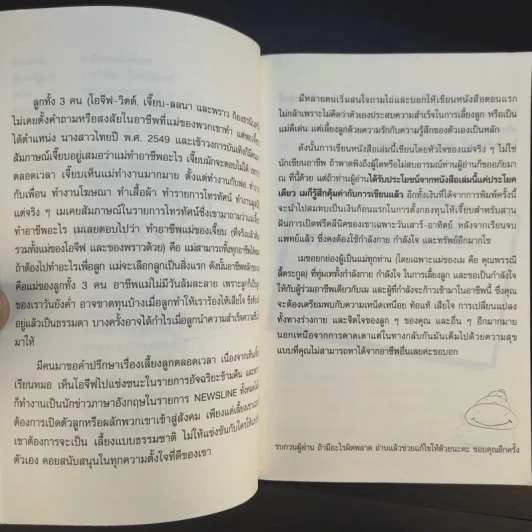 ลูกทั้ง 3 คน (โอจีฟ-วิตต์, เจี๊ยบ-ลลนา และพราว ก้องธรนินทร์)
ไม่เคยตั้งคำถามหรือสงสัยในอาชีพที่แม่ของพวกเขาทำ แต่พอเจี๊ยบ
ได้ตำแหน่ง นางสาวไทยปี พ.ศ. 2549 และเข้าวงการบันเทิงก็มีคน
สัมภาษณ์เจี๊ยบอยู่เสมอว่าแม่ทำอาชีพอะไร เจี๊ยบมักจะตอบไม่ได้ เพราะ
ตลอดเวลา เจี๊ยบเห็นแม่ทำงานมากมาย ตั้งแต่ทำงานกับพ่อ ทำงาน
กับเพื่อน ทำงานโฆษณา ทำเสื้อผ้า ทำรายการโทรทัศน์ ทำงานมูลนิธิ
แต่จริง ๆ เมเคยสัมภาษณ์ในรายการโทรทัศน์ซึ่งเขามาถามว่าแม่
ทำอาชีพอะไร เมเลยตอบไปว่า ทำอาชีพแม่ของเจี๊ยบ (ที่จริงแล้ว
รวมทั้งแม่ของโอจีฟ และของพราวด้วย) คือ แม่สามารถทิ้งทุกอาชีพได้
ถ้าต้องไปทำอะไรเพื่อลูก แม่จะเลือกลูกเป็นสิ่งแรก ดังนั้นอาชีพหลัก
คือแม่ของลูกทั้ง 3 คน อาชีพแม่ไม่มีวันล้มละลาย เพราะลูกก็เป็นลูก
ของเราวันยังค่ำ อาจขาดทุนบ้างเมื่อลูกทำให้เราร้องไห้เสียใจ ซึ่งต้องมี
อยู่แล้วเป็นธรรมดา บางครั้งอาจได้กำไรเมื่อลูกนำความสำเร็จความ
มาให้
มีคนมาขอคำปรึกษาเรื่องเลี้ยงลูกตลอดเวลา เนื่องจากเห็นเจี๊ยบ
เรียนหมอ เห็นโอจีฟไปแข่งชนะในรายการอัจฉริยะข้ามคืน และพราว
ก็ทำงานเป็นนักข่าวภาษาอังกฤษในรายการ NEWSLINE ทั้งหมดไม่ได้
ต้องการเปิดตัวลูกหรือผลักพวกเขาเข้าสู่สังคม เพียงแต่เลี้ยงเขาแบบ
เขาต้องการจะเป็น เลี้ยงแบบธรรมชาติ ไม่ให้แข่งขันกับใครให้แข่งกับ
ตัวเอง คอยสนับสนุนในทุกความตั้งใจที่ดีของเขา
มีหลายคนเริ่มสนใจถามไถ่และบอกให้เขียนหนังสือตอนแรก
ไม่กล้าเพราะไม่คิดว่าตัวเองประสบความสำเร็จในการเลี้ยงลูก หรือเป็น
แม่ดีเด่น แต่เลี้ยงลูกด้วยความรักกับความรู้สึกของตัวเองเป็นหลัก
ดังนั้นการเขียนหนังสือเล่มนี้เขียนโดยหัวใจของแม่จริง ๆ ไม่ใช่
นักเขียนอาชีพ ถ้าพาดพิงถึงผู้ใดหรือไม่สบอารมณ์ท่านผู้อ่านก็ขออภัยมา
ณ ที่นี้ด้วย แต่ถ้าท่านผู้อ่านได้รับประโยชน์จากหนังสือเล่มนี้แค่ประโยค
เดียว เมก็รู้สึกคุ้มค่ากับการเขียนแล้ว อีกทั้งเงินที่ได้จากการพิมพ์ครั้งนี้
จะนำไปสมทบเป็นเงินก้อนแรกในการตั้งกองทุนให้เจี๊ยบสำหรับสาน
ฝันการเปิดฟรีคลินิคของเขาเฉพาะวันเสาร์-อาทิตย์ หลังจากเรียนจบ
แพทย์แล้ว ซึ่งคงต้องใช้กำลังกาย กำลังใจ และทรัพย์อีกมากโข
เมขอยกย่องผู้เป็นแม่ทุกท่าน (โดยเฉพาะแม่ของเม คือ คุณพรรณี
ลี้ตระกูล) ที่ทุ่มเททั้งกำลังกาย กำลังใจ ในการเลี้ยงลูก และขอเป็นกำลังใจ
ให้กับผู้ร่วมอาชีพเดียวกับเม และผู้ที่กำลังจะก้าวเข้ามาในอาชีพนี้ ซึ่งคุณ
จะต้องเตรียมพบกับความเหน็ดเหนื่อย ท้อแท้ เสียใจ การเปลี่ยนแปลง
ทั้งทางร่างกาย และจิตใจของลูก ๆ ของคุณ และอื่น ๆ อีกมากมาย
นอกเหนือจากการคาดเดาแต่ในทางกลับกันมันเต็มไปด้วยความสุข
แบบที่คุณไม่สามารถหาได้จากอาชีพอื่นเลยค่ะขอบอก
รบกวนผู้อ่าน ถ้ามีอะไรผิดพลาด อ่านแล้วช่วยแก้ไขให้ด้วยนะคะ ขอบคุณอีกครั้ง